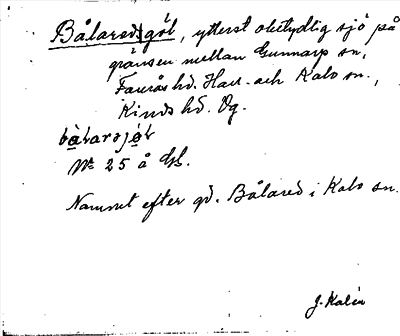 Bålaredgöl, ytterst obetydlig sjö på
gränsen mellan Gunnarp sn,
Faurås hd. Hall. och Kalv sn.,
Kinds hd. Vg.
No 25 å Gk.
Namnet efter gd. Bålared i Kalv sn.
J. Kalén